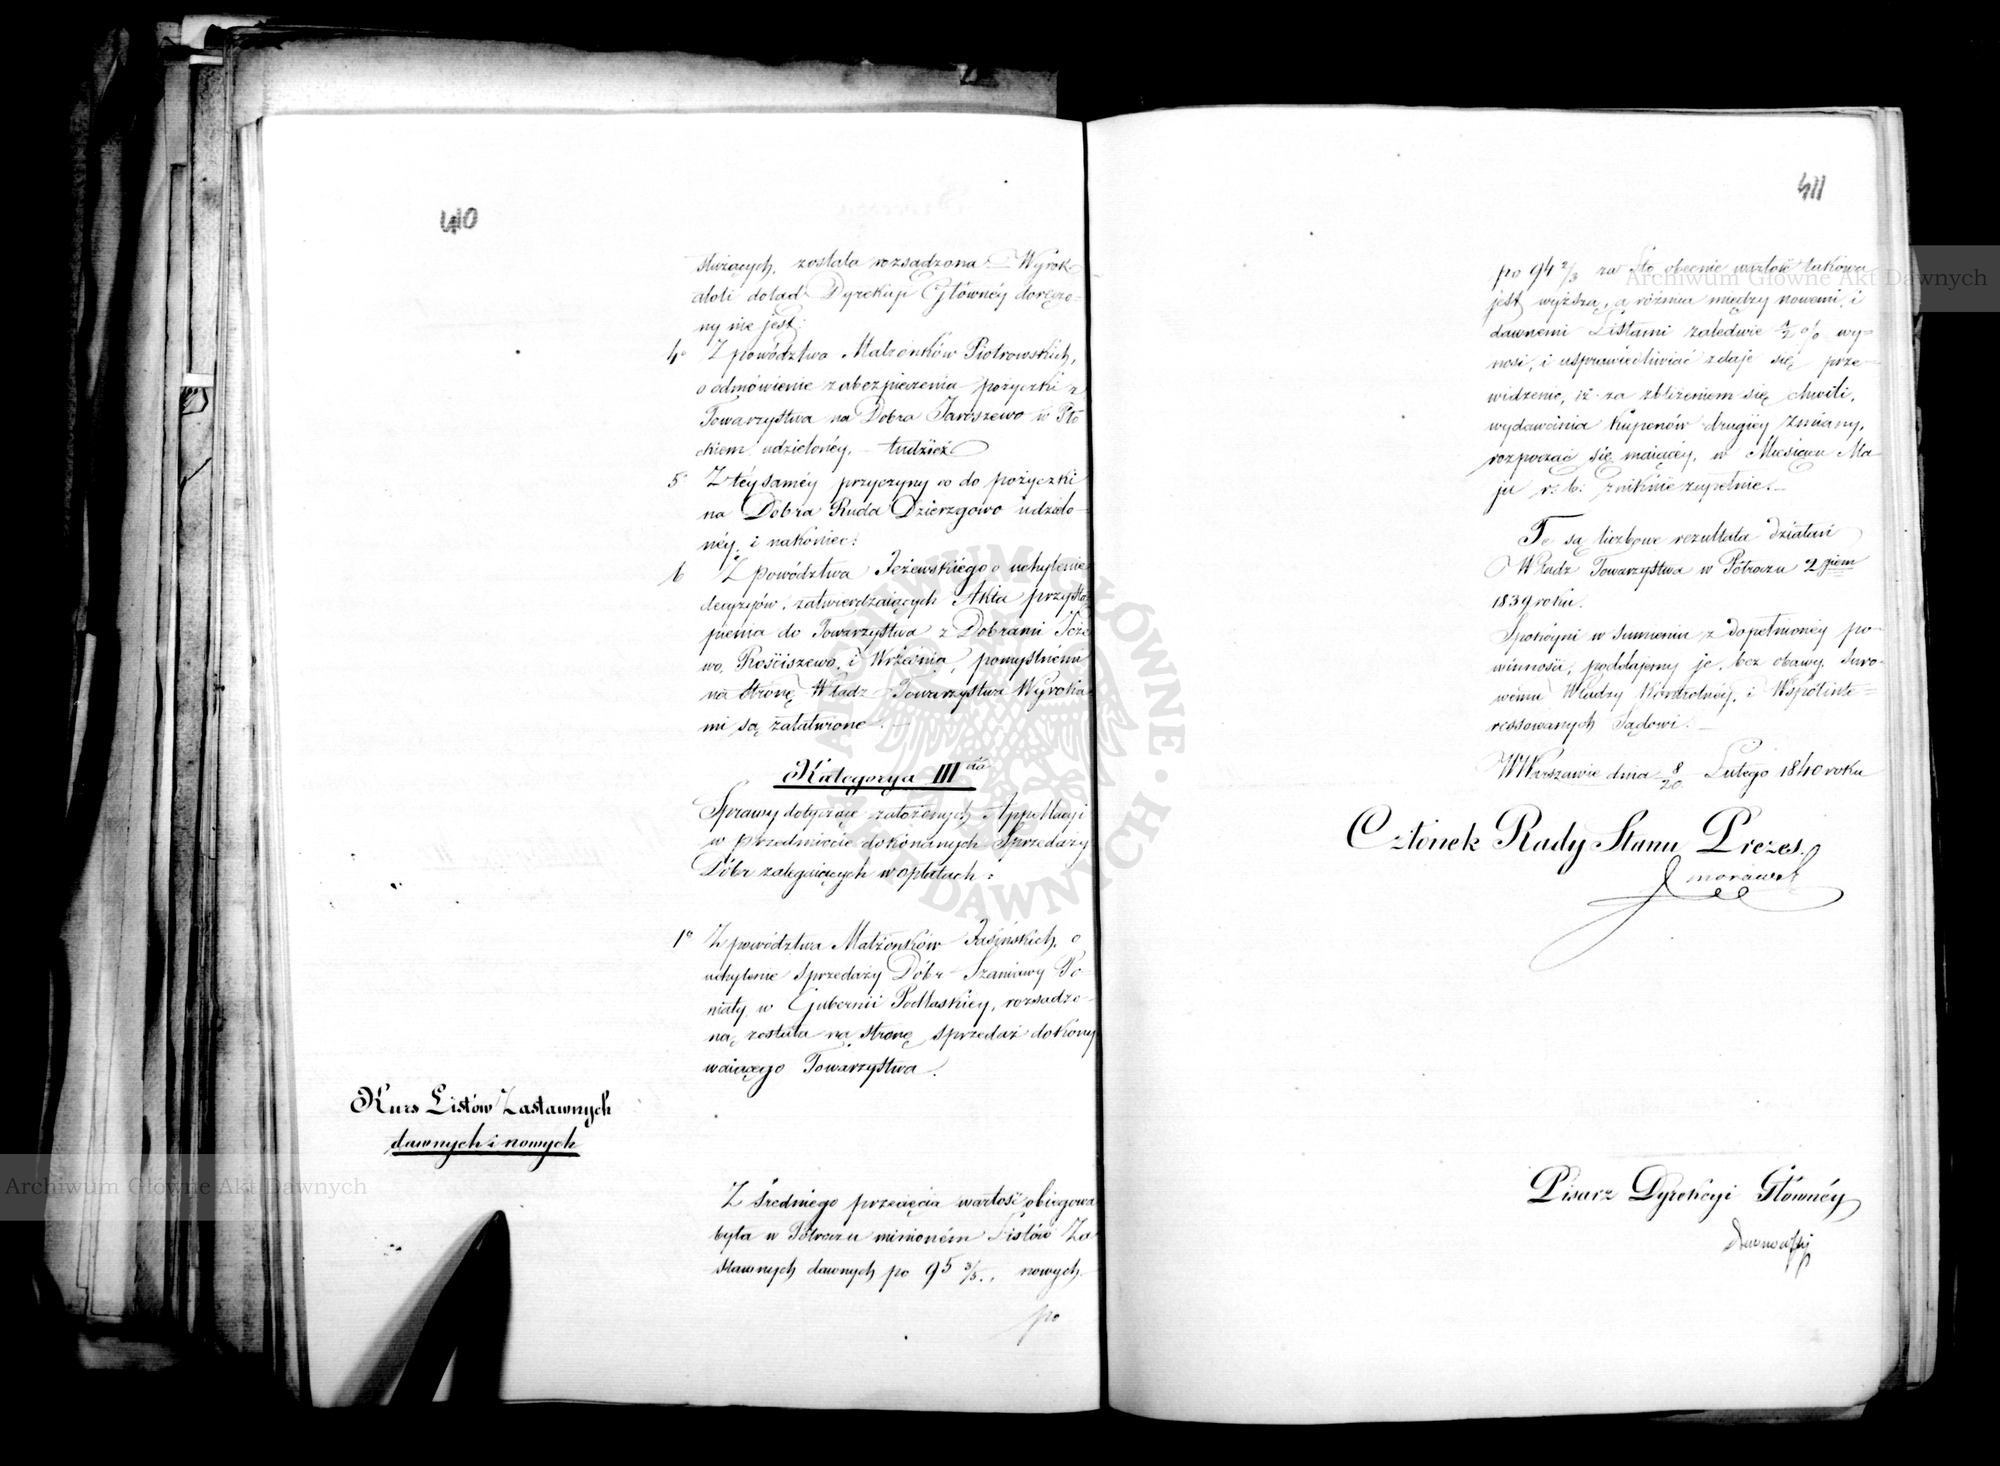 410
służących, została rozsądzona – Wyrok
atoli dotąd Dyrekcyi Główney doręczo-
ny nie jest.
4° Z powództwa Małżonków Piotrowskich,
o odmówienie zabezpieczenia pożyczki z
Towarzystwa na Dobra Jaroszewo w Pło
ckiem udzieloney, – tudzież
5° Z téy saméy przyczyny co do pożyczki
na Dobra Ruda Dzierzgowo udzielo-
néy, i nakoniec:
6 Z powództwa Jeżewskiego o uchylenie
decyzyów, zatwierdzaiących Akta przystą
pienia do Towarzystwa z Dobrami Jeże
wo, Rościszewo, i Września, pomyślnémi
na stronę Władz Towarzystwa Wyroka
mi są załatwione. –
Kategorya III cia
Sprawy dotyczące założonych Appellacyi
w przedmiocie dokonanych Sprzedaży
Dóbr zalegaiących w opłatach:
1° Z powództwa Małżonków Jasińskich, o
uchylenie sprzedaży Dóbr Szaniawy Po-
niaty w Gubernii Podlaskiey, rozsądzo-
ną została na stronę sprzedaż dokony
waiącego Towarzystwa.
Kurs Listów Zastawnych
dawnych i nowych
Z średniego przecięcia wartość obiegowa
była w Półroczu minioném Listów Za
stawnych dawnych po 95 3/5, nowych
po
411
po 94 2/3 za sto obecnie wartość takowa
jest wyższą, a różnica między nowemi i
dawnemi Listami zaledwie 1/2 % wy-
nosi, i usprawiedliwiać zdaje się prze-
widzenie, iż za zbliżeniem się chwili,
wydawania Kuponów drugiey Zmiany,
rozpocząć się maiącey, w Miesiącu Ma
ju r: b: zniknie zupełnie. –
Te są liczbowe rezultata działań
Władz Towarzystwa w Półroczu 2giem
1839 roku.
Spokoyni w sumieniu z dopełnioney po-
winności, poddajemy je, bez obawy, suro-
wému Władzy Kontrolnéy, i Współinte-
ressowanych Sądowi. –
W Warszawie dnia 8/20 Lutego 1840 roku
Członek Rady Stanu Prezes.
J Morawski
Pisarz Dyrekcyi Główney
Archiwum Główne Akt Dawnych
Archiwum Główne Akt Dawnych
ARCHIWUM GŁÓWNE AKT DAWNYCH